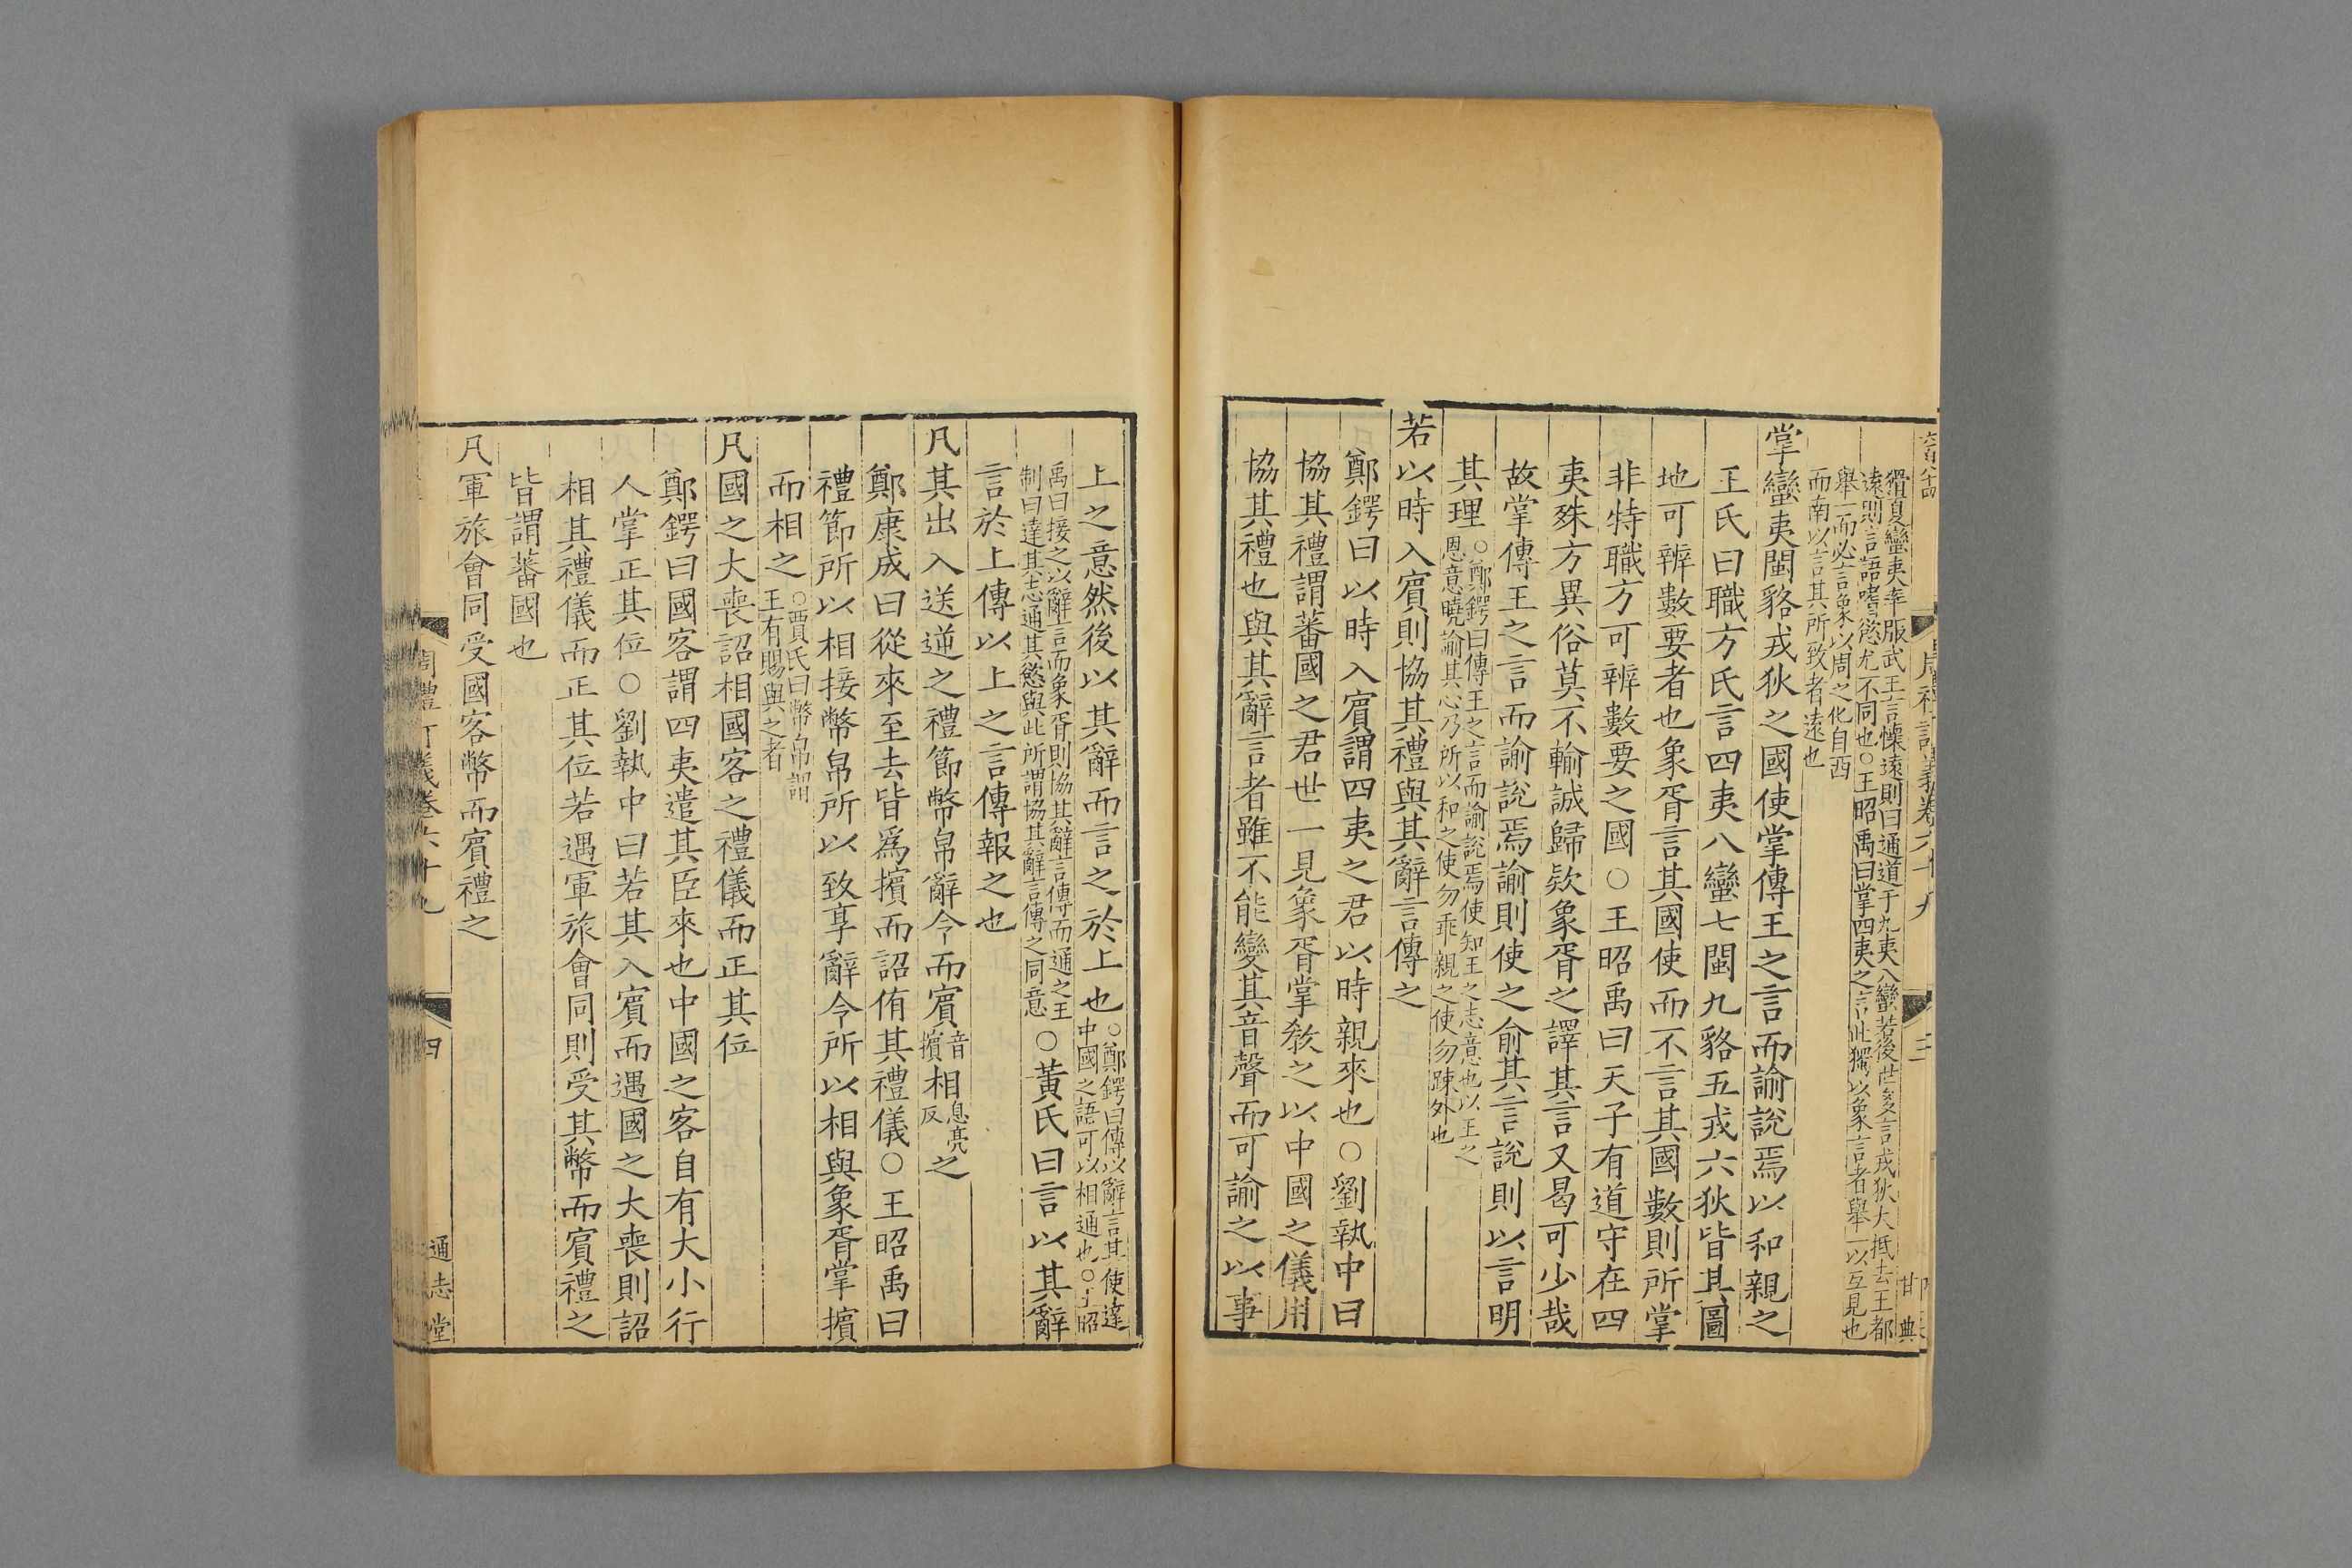 猾夏蠻夷率服武王言慄遠則曰通道于九夷八蠻若後世多言戎狄大抵去王都
遠則言語嗜慾尤不同也○王昭禹曰掌四夷之言此獨以象言者舉一以互見也
舉一而必言象以周之化自西
而南以言其所致者遠也
掌蠻夷閩貉戎狄之國使掌傳王之言而諭說焉以和親之
王氏曰職方氏言四夷八蠻七閩九貉五戎六狄皆其圖
地可辨數要者也象胥言其國使而不言其國數則所掌
非特職方可辨數要之國○王昭禹曰天子有道守在四
夷殊方異俗莫不輸誠歸欵象胥之譯其言又曷可少哉
故掌傳王之言而諭說焉諭則使之俞其言說則以言明
其理○鄭鍔曰傳王之言而諭說焉使知王之志意也以王之
恩意曉諭其心乃所以和之使勿乖親之使勿踈外也
若以時入賓則協其禮與其辭言傳之
鄭鍔曰以時入賓謂四夷之君以時親來也○劉執中曰
協其禮謂蕃國之君世一見象胥掌教之以中國之儀用
協其禮也與其辭言者雖不能變其音聲而可諭之以事
上之意然後以其辭而言之於上也○鄭鍔曰傳以辭言其使達
中國之語可以相通也○王昭
禹曰接之以辭言而象胥則協其辭言傳而通之王
制曰達其志通其慾與此所謂協其辭言傳之同意○黃氏曰言以其辭
言於上傳以上之言傳報之也
凡其出入送逆之禮節幣帛辭令而賓音
擯相息亮
反之
鄭康成曰從來至去皆爲擯而詔侑其禮儀○王昭禹曰
禮節所以相接幣帛所以致享辭令所以相與象胥掌擯
而相之○賈氏曰幣帛謂
王有賜與之者
凡國之大喪詔相國客之禮儀而正其位
鄭鍔曰國客謂四夷遣其臣來也中國之客自有大小行
人掌正其位○劉執中曰若其入賓而遇國之大喪則詔
相其禮儀而正其位若遇軍旅會同則受其幣而賓禮之
皆謂蕃國也
凡軍旅會同受國客幣而賓禮之
周禮訂義卷六十九
四
通志堂